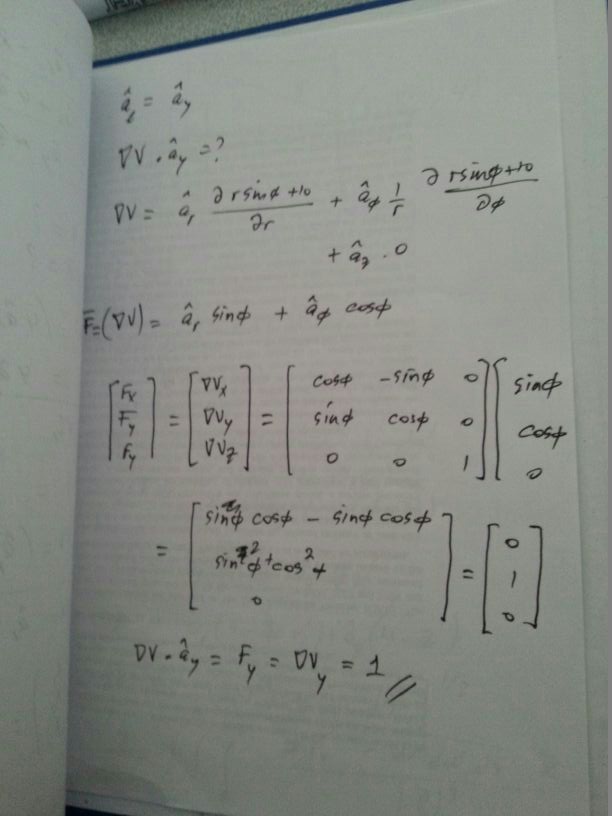 â_l = â_y
∇V · â_y = ?
∇V = â_r ∂ r sinφ + 10 / ∂r + â_φ 1/r ∂ r sinφ + 10 / ∂φ
+ â_z · 0
F̄ = (∇V) = â_r sinφ + â_φ cosφ
[Fx Fy Fy] = [∇Vx ∇Vy ∇Vz] = [cosφ -sinφ 0; sinφ cosφ 0; 0 0 1] [sinφ cosφ 0]
= [sinφ cosφ - sinφ cosφ; sin²φ + cos²φ; 0] = [0 1 0]
∇V · â_y = F_y = ∇V_y = 1 //